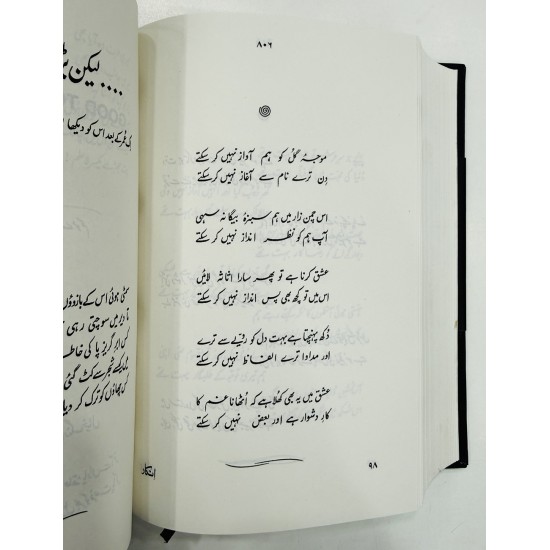 ۸۰۶
موجۂ گل کو ہم آواز نہیں کر سکتے
دن ترے نام سے آغاز نہیں کر سکتے
اس چمن زار میں ہم سبزۂ بیگانہ سہی
آپ ہم کو نظر انداز نہیں کر سکتے
عشق کرنا ہے تو پھر سارا اثاثہ لائیں
اس میں تو کچھ بھی پس انداز نہیں کر سکتے
دکھ پہنچتا ہے بہت دل کو رویے سے ترے
اور مداوا ترے الفاظ نہیں کر سکتے
عشق میں یہ بھی کھلا ہے کہ اٹھانا غم کا
کار دشوار ہے اور بعض نہیں کر سکتے
۹۸
انکار
.... لیکن
کے بعد اس کو دیکھا
ہوئی اس کے بازوؤں
دیر میں سوچتی رہی
گریز پا کی
سے کٹ گئی
چھاؤں کو ترک کر دیا